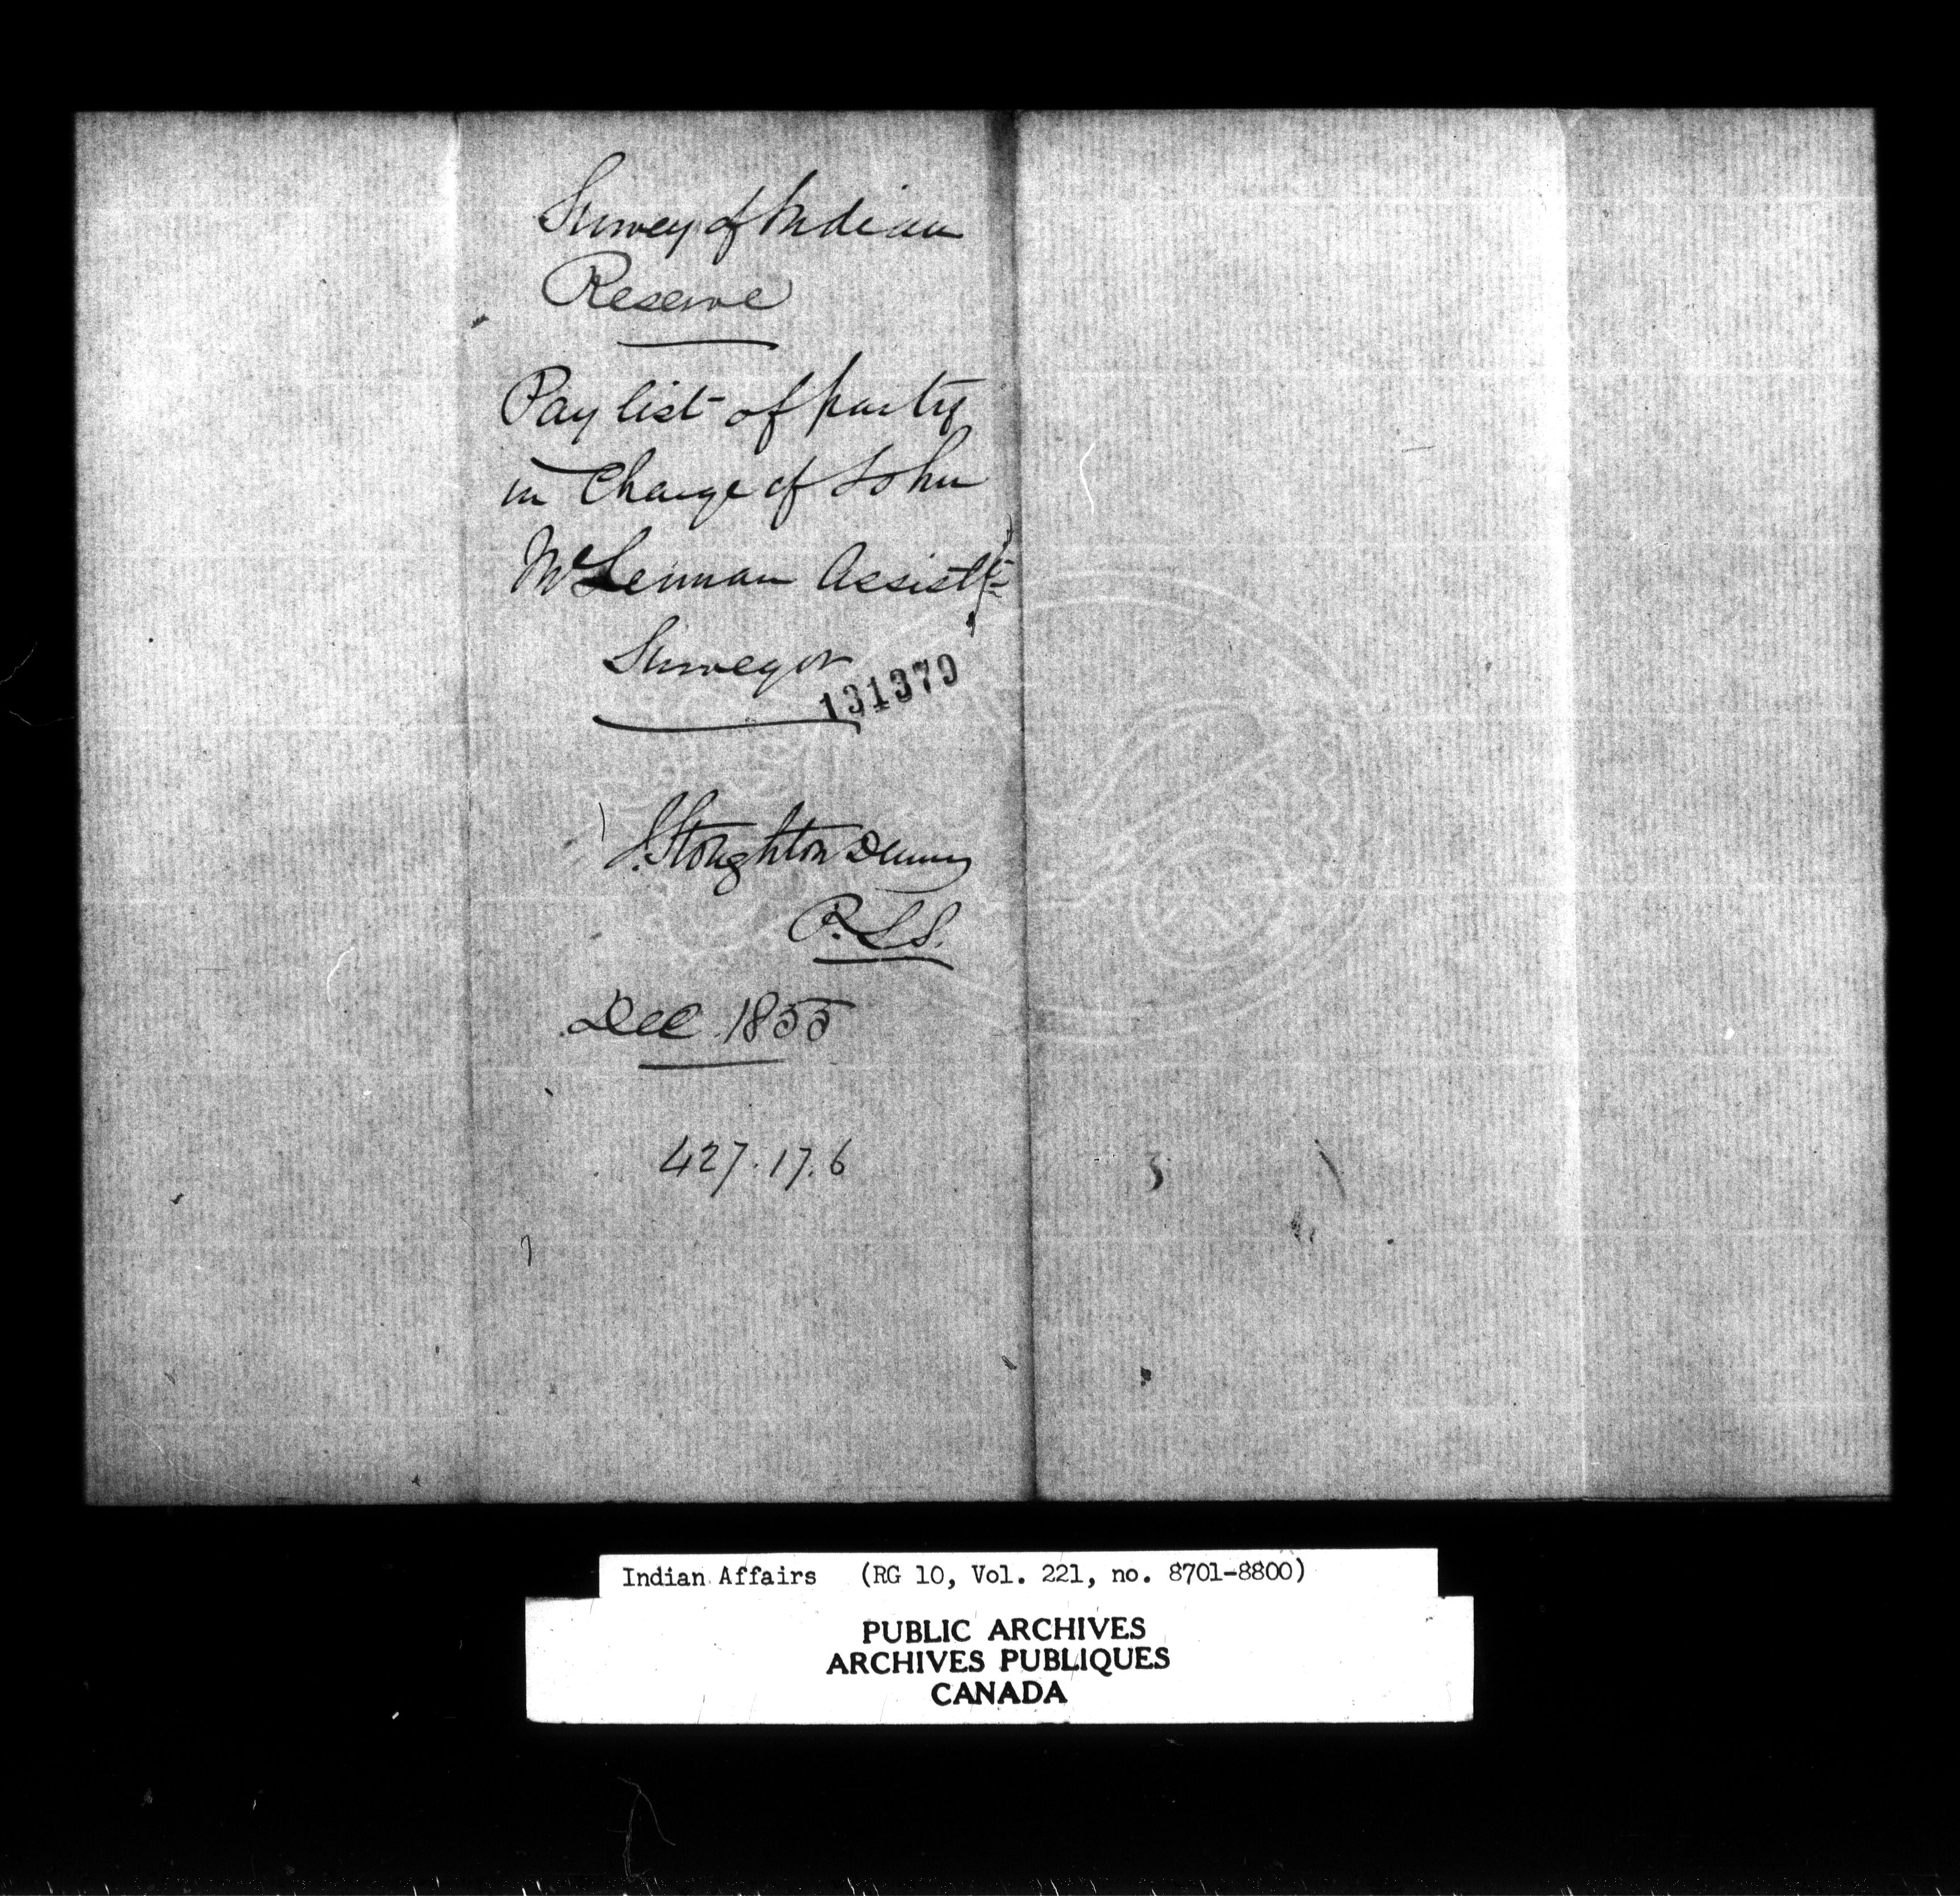 Survey of Indian
Reserve
Pay list of party
in Charge of John
McLennan Assistt
Surveyor
131379
J. Stoughton Dennis
P.L.S.
Dec 1855
427.17.6
Indian Affairs (RG 10, Vol. 221, no. 8701-8800)
PUBLIC ARCHIVES
ARCHIVES PUBLIQUES
CANADA